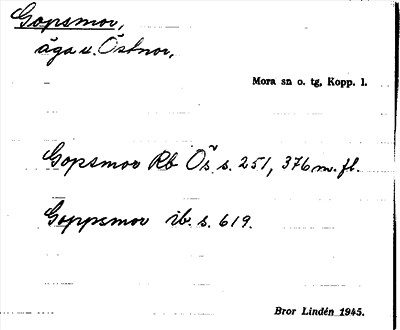 Gopsmor,
äga u. Östnor,
Mora sn o. tg, Kopp. l.
Gopsmor Rb Ös s. 251, 376 m. fl.
Goppsmor ib. s. 619.
Bror Lindén 1945.